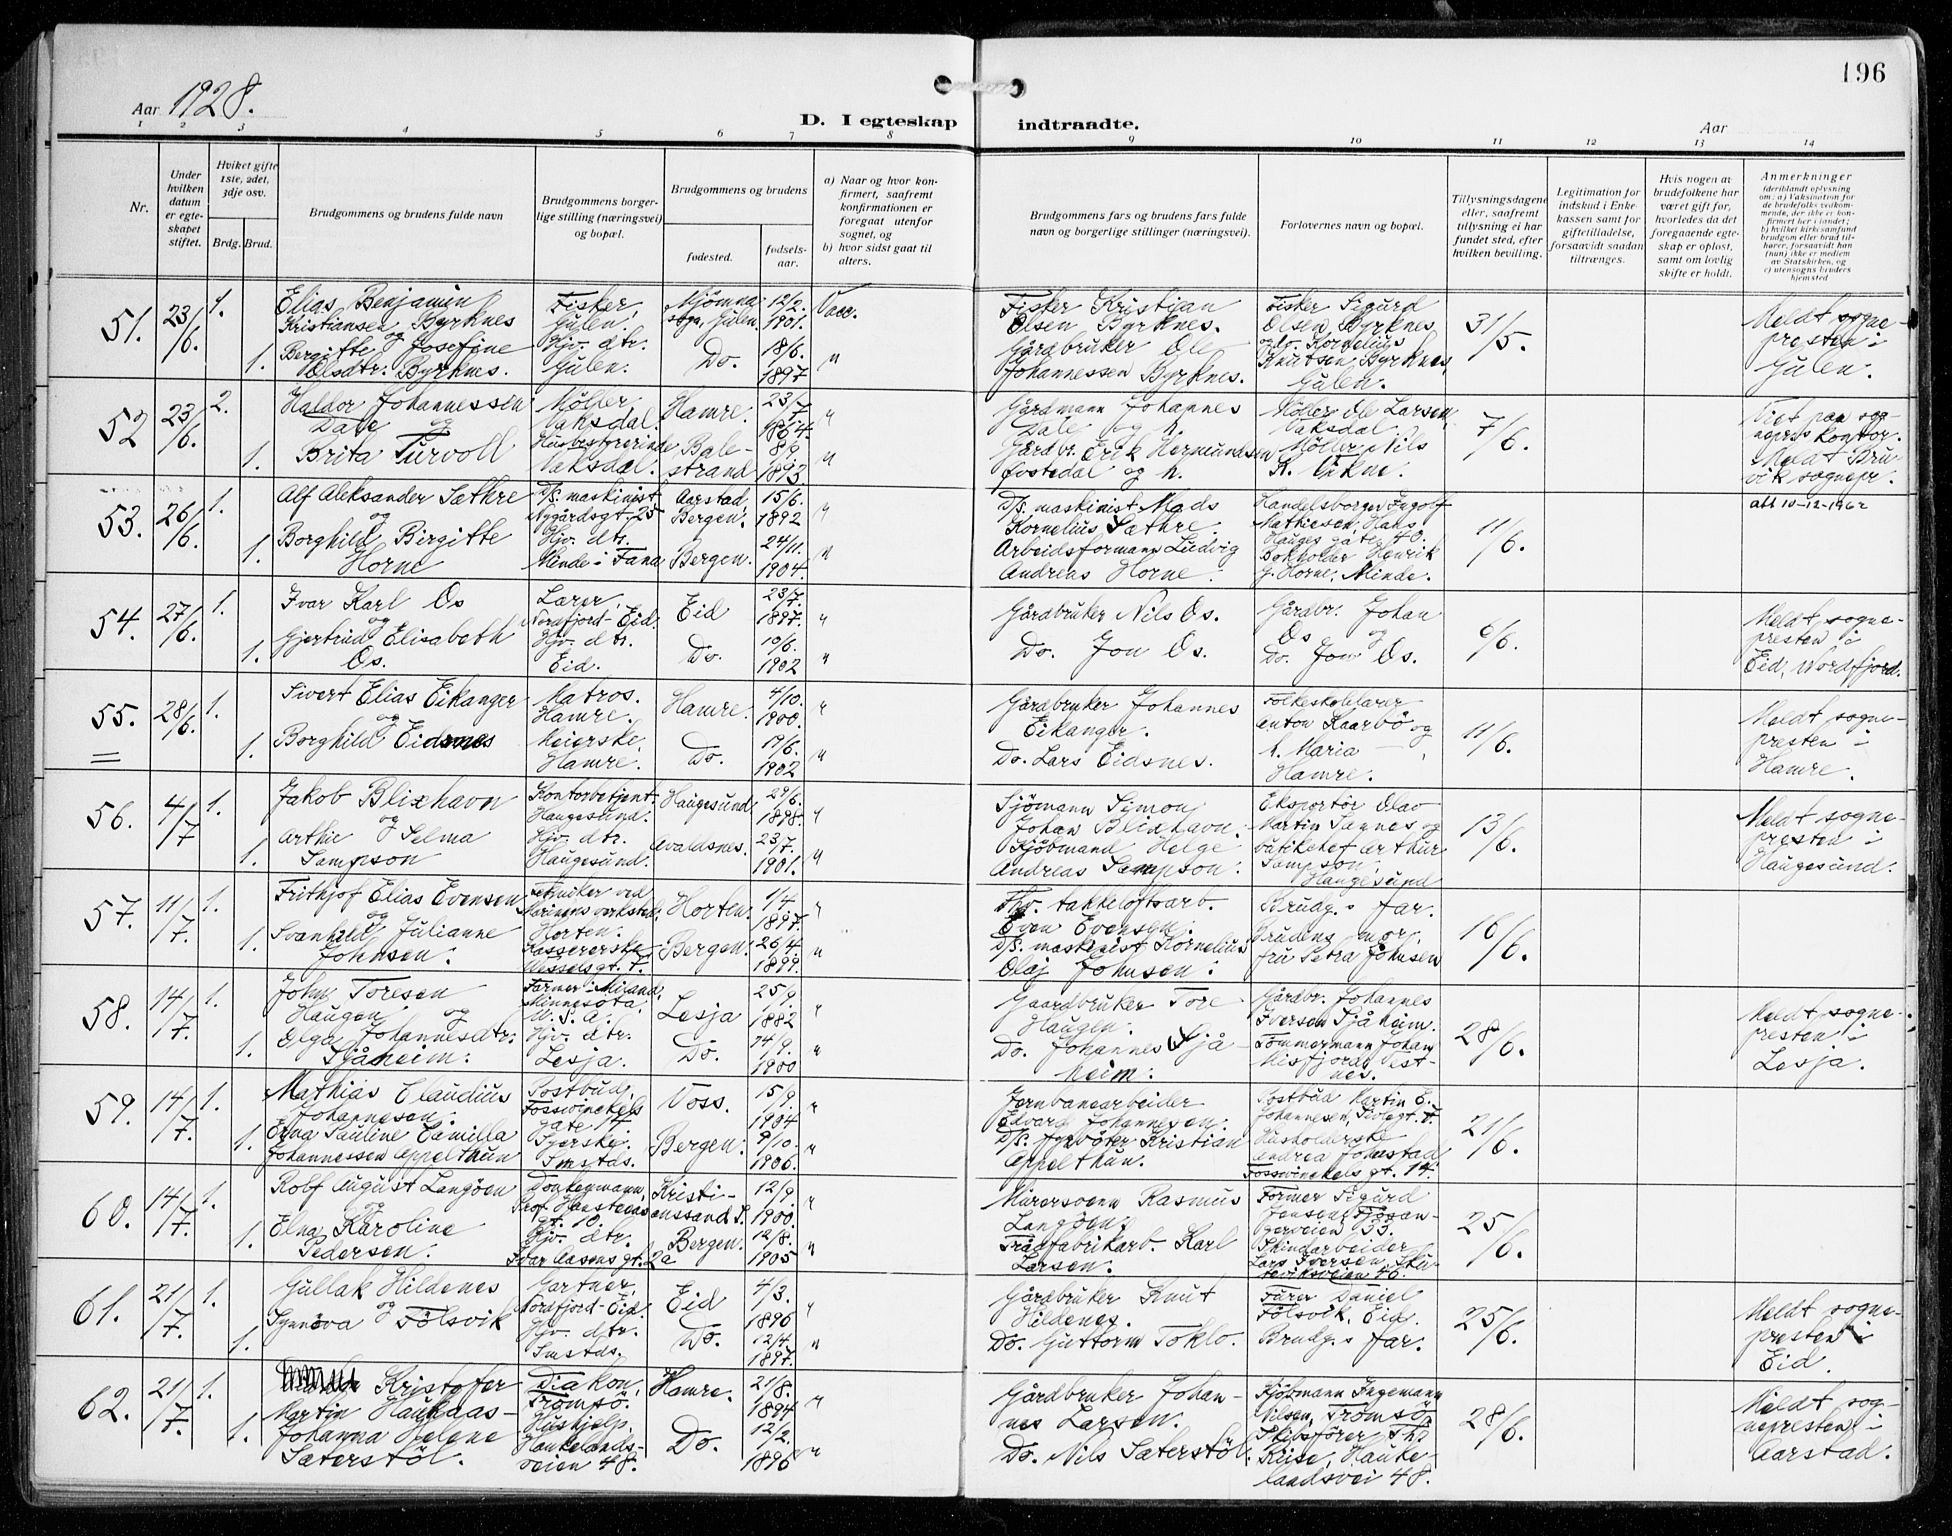 Aar 1928.
D. I egteskap indtraadte.
Aar
196
1 2 3 4 5 6 7 8 9 10 11 12 13 14
Nr.
Under hvilken datum er egteskapet stiftet.
Hviket gifte 1ste, 2det, 3dje osv.
Brdg. Brud.
Brudgommens og brudens fulde navn
Brudgommens borgerlige stilling (næringsvei) og bopæl.
Brudgommens og brudens
fødested.
fødselsaar.
a) Naar og hvor konfirmert, saafremt konfirmationen er foregaat utenfor sognet, og
b) hvor sidst gaat til alters.
Brudgommens fars og brudens fars fulde navn og borgerlige stillinger (næringsvei).
Forlovernes navn og bopæl.
Tillysningsdagene eller, saafremt tillysning ei har fundet sted, efter hvilken bevilling.
Legitimation for indskud i Enkekassen samt for giftetilladelse, forsaavidt saadan tiltrænges.
Hvis nogen av brudefolkene har været gift før, hvorledes da det foregaaende egteskap er opløst, samt om lovlig skifte er holdt.
Anmerkninger (deriblandt oplysning om: a) Vaksination for de brudefolks vedkommende, der ikke er konfirmert her i landet; b) hvilket kirkesamfund brudgom eller brud tilhører, forsaavidt han (hun) ikke er medlem av Statskirken, og c) utensogns bruders hjemsted
51. 23/6. 1. Elias Benjamin Kristiansen Byrknes og Fisker, Gulen. Mjømna sogn, Gulen. 12/2. 1901. Vacc. Fisker Kristian Olsen Byrknes. Fisker Sigurd Olsen Byrknes, 31/5. Meldt sognepresten i Gulen.
1. Bergitte Josefine Olsdtr. Byrknes. Hjv. dtr. Gulen. Do. 18/6. 1897 " Gårdbruker Ole Johannessen Byrknes. og Kornelius Knutsen Byrknes, Gulen.
52 23/6. 2. Haldor Johannessen Dale og Møller Vaksdal. Hamre. 23/7 1864. " Gårdmann Johannes Dale og h. Møller Ole Larsen, Vaksdal. 7/6. Viet paa sognepres kontor. Meldt Bruvik sognepr.
1. Brita Turvoll Husbestyrerinde Vaksdal. Balestrand 8/9. 1893 " Gårdbr. Erik Hermundsen Jostedal og h. Møller Nils
53. 26/6. 1. Alf Aleksander Sæthre og D/S. maskinist Nygårdsgt. 25 Aarstad, Bergen. 15/6. 1892 " D/S. maskinist Mads Kornelius Sæthre. Handelsborger Ingolf Mathiesen, Hans Hauges gate 40. 11/6. att 10-12-1962
1. Borghild Birgitte Horne Hjv. dtr. Minde i Fana Bergen. 24/11. 1904. " Arbeidsformann Ludvig Andreas Horne. Bokholder Henrik G. Horne, Minde.
54. 27/6. 1. Ivar Karl Os og Lærer, Nordfjord-Eid. Eid 23/7. 1897. " Gårdbruker Nils Os. Gårdbr. Johan Os og 6/6. Meldt sognepresten i Eid, Nordfjord.
1. Gjertrud Elisabeth Os. Hjv. dtr. Eid. Do. 10/6. 1902 " Do. Jon Os. Do. Jon Os.
55. 28/6. 1. Sivert Elias Eikanger og Matros. Hamre. Hamre. 4/10. 1900. " Gårdbruker Johannes Eikanger. Folkeskolelærer Anton Kaarbø og 11/6. Meldt sognepresten i Hamre.
1. Borghild Eidsnes Meierske. Hamre. Do. 19/6. 1902 " Do. Lars Eidsnes. h. Maria Hamre.
56. 4/7 1. Jakob Blixhavn og Kontorbetjent. Haugesund. Haugesund. 29/6. 1898. " Sjömann Simon Johan Blixhavn. Eksportör Olav Martin Sannes og 13/6. Meldt sognepresten i Haugesund.
1. Arthie Selma Sampson Hjv. dtr. Haugesund. Avaldsnes. 23/7. 1901. " Kjöbmand Helge Andreas Sampson. butikchef Arthur Sampson, Haugesund
57. 11/7. 1. Frithjof Elias Evensen og Tekniker ved Marinens verksted, Horten. Horten. 1/4. 1897. " Fhv. takkeloftsarb. Even Evensen. Brudg.s far. 16/6.
1. Svanhild Julianne Johnsen. Kassererske Wesselsgt. 7. Bergen. 26/4. 1899. " D/S. maskinist Kornelius Olaj Johnsen. Brudens mor, fru Petra Johnsen
58. 14/7. 1. John Toresen Haugen og Farmer Miland, Minnesota, U.S.A. Lesja 25/9. 1882 " Gaardbruker Tore Haugen. Gårdbr. Johannes Iversen Sjåheim. 28/6. Meldt sognepresten i Lesja.
1. Olga Johannesdtr. Sjåheim. Hjv. dtr. Lesja. Do. 14/9. 1900 " Do. Johannes Sjåheim. Tömmermann Johan Misfjord, Test-nes.
59. 14/7. 1. Mathias Claudius Johannesen. Postbud, Fosswinckels gate 14. Voss. 15/9. 1904 " Jernbanearbeider Edvard Johannesen. Postbud Martin E. Johannesen, 21/6.
1. Erna Pauline Camilla Johannessen Appelthun Syerske. Smstds. Bergen. 9/10. 1906. " D/S. fyrböter Kristian Appelthun. Husholderske Andrea Johnstad Fosswinckels gt. 14.
60. 14/7. 1. Rolf August Langöen og Donkeymann, Prof. Hansteens gt. 10. Kristianssand S. 12/9. 1900. " Murersvenn Rasmus Langöen. Former Sigurd Jensen, Fjösangerveien 53. 25/6.
1. Elna Karoline Pedersen. Hjv. dtr. Ivar Aasens gt. 2a Bergen. 12/8. 1905 " Trådfabrikarb. Karl Larsen. Skindarbeider Lars Iversen, Skuteviksveien 46.
61. 21/7. 1. Gullak Hildenes og Gartner, Nordfjord-Eid. Eid 4/3. 1896 " Gårdbruker Knut Hildenes. Furer Daniel Fölsvik, Eid. 25/6. Meldt sognepresten i Eid.
1. Synnöva Fölsvik Hjv. dtr. Smstds. Do. 12/4. 1897. " Do. Guttorm Toklo. Brudg.s far.
62. 21/7. 1. Kristofer Martin Haukaas - Diakon, Tromsö. Hamre. 21/8. 1894 " Gårdbruker Johannes Larsen. Kjöbmann Ingemann Nilsen, Tromsö. 28/6. Meldt sognepresten i Aarstad.
1. Johanna Helene Sæterstöl. Hushjelp, Haukelandsveien 48. Do. 12/2. 1896 " Do. Nils Sæterstöl. Skibsförer Th. Kruse, Haukelandsvei 48.